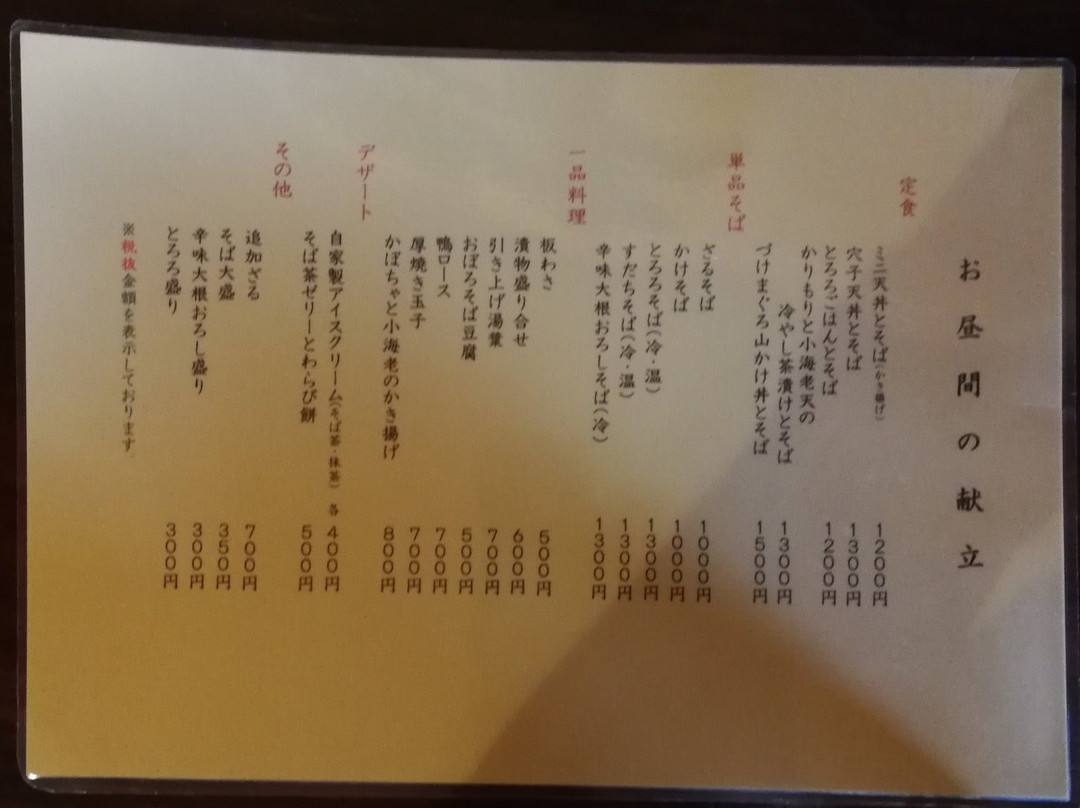 お昼間の献立
定食
ミニ天丼とそば(かき揚げ) 1200円
穴子天丼とそば 1300円
とろろごはんとそば 1200円
かりもりと小海老天の
冷やし茶漬けとそば 1300円
づけまぐろ山かけ丼とそば 1500円
単品そば
ざるそば 1000円
かけそば 1000円
とろろそば(冷・温) 1300円
すだちそば(冷・温) 1300円
辛味大根おろしそば(冷) 1300円
一品料理
板わさ 500円
漬物盛り合せ 600円
引き上げ湯葉 700円
おぼろそば豆腐 500円
鴨ロース 700円
厚焼き玉子 700円
かぼちゃと小海老のかき揚げ 800円
デザート
自家製アイスクリーム(そば茶・抹茶) 各 400円
そば茶ゼリーとわらび餅 500円
その他
追加ざる 700円
そば大盛 350円
辛味大根おろし盛り 300円
とろろ盛り 300円
※税抜金額を表示しております